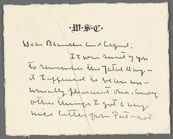 ·W·S·C·
Dear Blanche and Alfred:
It was sweet of you
to remember the fatal day—
it happened to be an un-
usually pleasant one; among
other things I got a very
nice letter from Port-